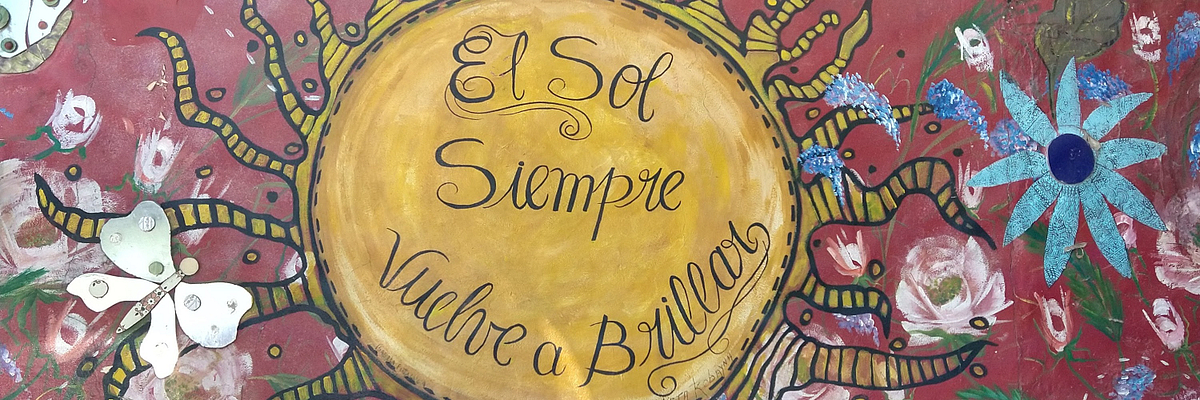 El Sol
Siempre
Vuelve a Brillar